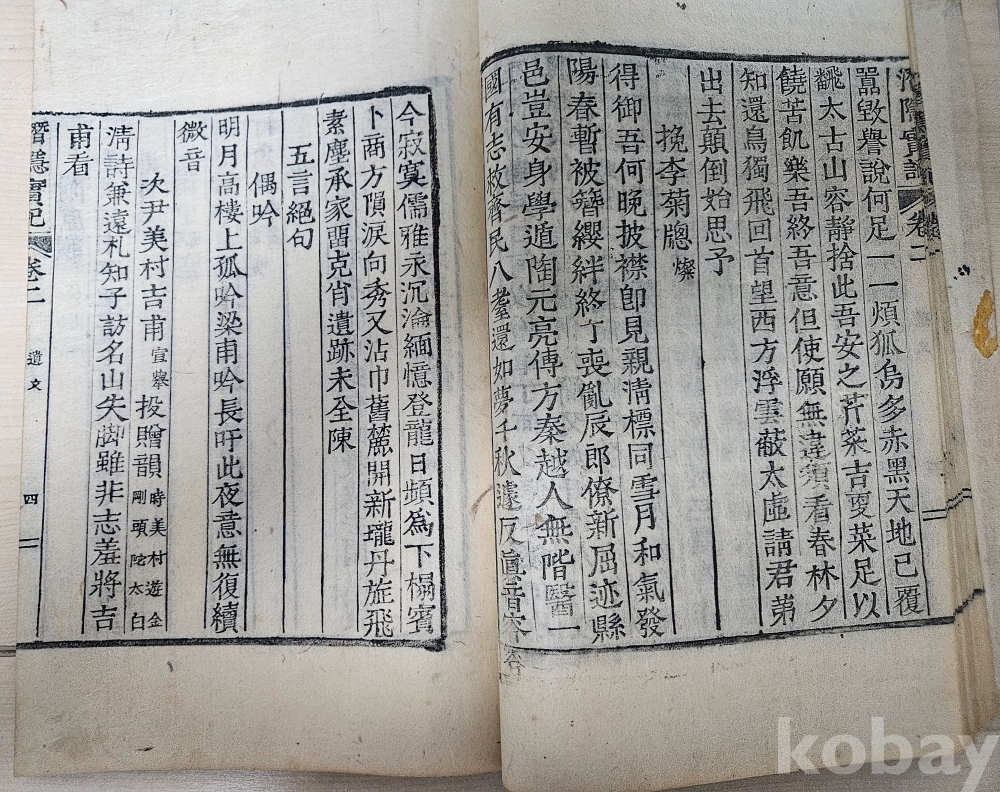 囂毀譽說何足一一煩狐烏多赤黑天地已覆
飜太古山容靜捨此吾安之芹菜吉更菜足以
饒苦飢樂吾終吾意但使願無違須看春林夕
知還鳥獨飛回首望西方浮雲蔽太虛請君第
出去顛倒始思予
挽李菊牕 燦
得御吾何晚披襟卽見親淸標同雪月和氣發
陽春暫被簪纓絆終丁喪亂辰郎僚新屈迹縣
邑豈安身學遁陶元亮傳方秦越人無階醫一
國有志救齊民八耋還如夢千秋遽反眞音容
今寂寞儒雅永沉淪緬憶登龍日頻爲下榻賓
卜商方隕淚向秀又沾巾舊麓開新壠丹旌飛
素塵承家留克肖遺跡未全陳
五言絕句
偶吟
明月高樓上孤吟梁甫吟長吁此夜意無復續
微音
次尹美村吉甫 宣擧 投贈韻 時美村遊金剛頭陀太白
淸詩兼遠札知子訪名山失脚雖非志羞將吉
甫看
潛隱實記 卷二 遺文 四